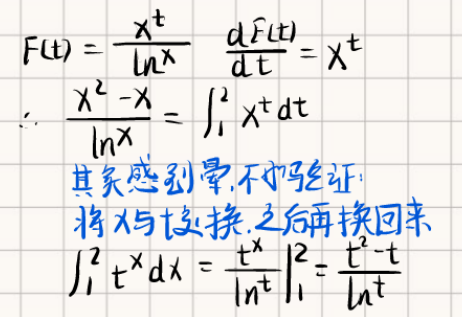 F(t) = x^t / ln^x    dF(t)/dt = x^t
∴ (x^2 - x) / ln^x = ∫_1^2 x^t dt
其实感到晕,不妨验证:
将x与t交换.之后再换回来
∫_1^2 t^x dx = t^x / ln^t |_1^2 = (t^2 - t) / ln^t